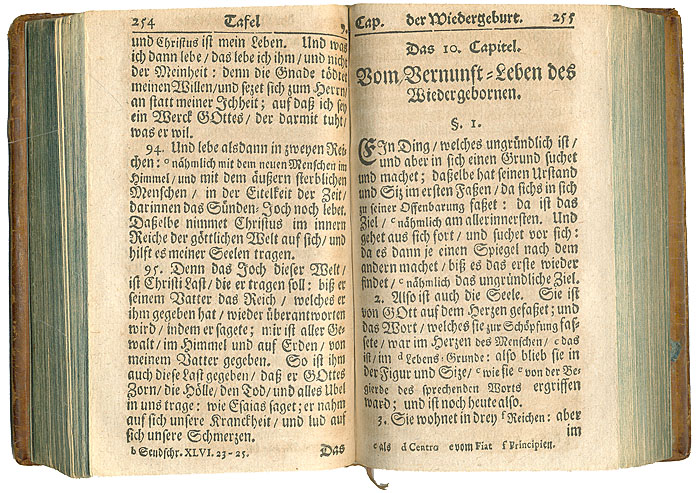 254 Tafel 9.
und Christus ist mein Leben. Und was
ich dann lebe / das lebe ich ihm / und nicht
der Meinheit: denn die Gnade tödtet
meinen Willen / und sezet sich zum Herrn /
an statt meiner Ichheit; auf daß ich sey
ein Werck GOttes / der darmit tuht /
was er wil.
94. Und lebe alsdann in zweyen Rei-
chen: nähmlich mit dem neuen Menschen im
Himmel / und mit dem äußern sterblichen
Menschen / in der Eitelkeit der Zeit /
darinnen das Sünden-Joch noch lebet.
Daßelbe nimmet Christus im innern
Reiche der göttlichen Welt auf sich / und
hilft es meiner Seelen tragen.
95. Denn das Joch dieser Welt /
ist Christi Last / die er tragen soll: biß er
seinem Vatter das Reich / welches er
ihm gegeben hat / wieder überantworten
wird / indem er sagete; mir ist aller Ge-
walt / im Himmel und auf Erden / von
meinem Vatter gegeben. So ist ihm
auch diese Last gegeben / daß er GOttes
Zorn / die Hölle / den Tod / und alles Übel
in uns trage: wie Esaias saget; er nahm
auf sich unsere Kranckheit / und lud auf
sich unsere Schmerzen.
b Sendschr. XLVI. 23-25. Das
Cap. der Wiedergeburt. 255
Das 10. Capitel.
Vom Vernunft-Leben des
Wiedergebornen.
§. 1.
EIn Ding / welches ungründlich ist /
und aber in sich einen Grund suchet
und machet; daßelbe hat seinen Urstand
und Siz im ersten Faßen / da sichs in sich
zu seiner Offenbarung faßet: da ist das
Ziel / c nähmlich am allerinnersten. Und
gehet aus sich fort / und suchet vor sich:
da es dann je einen Spiegel nach dem
andern machet / biß es das erste wieder
findet / c nähmlich das ungründliche Ziel.
2. Also ist auch die Seele. Sie ist
von GOtt auf dem Herzen gefaßet; und
das Wort / welches sie zur Schöpfung faß-
sete / war im Herzen des Menschen / c das
ist / im d Lebens-Grunde: also blieb sie in
der Figur und Size / c wie sie e von der Be-
gierde des sprechenden Worts ergriffen
ward; und ist noch heute also.
3. Sie wohnet in drey f Reichen: aber
im
c als d Centro e vom Fiat f Principien.